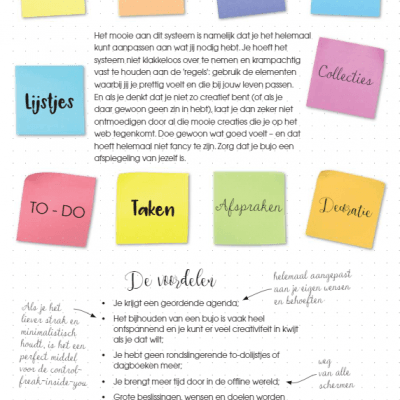 Het mooie aan dit systeem is namelijk dat je het helemaal
kunt aanpassen aan wat jij nodig hebt. Je hoeft het
systeem niet klakkeloos over te nemen en krampachtig
vast te houden aan de 'regels': gebruik de elementen
waarbij jij je prettig voelt en die bij jouw leven passen.
En als je denkt dat je niet zo creatief bent (of als je
daar gewoon geen zin in hebt), laat je dan zeker niet
ontmoedigen door al die mooie creaties die je op het
web tegenkomt. Doe gewoon wat goed voelt – en dat
hoeft helemaal niet fancy te zijn. Zorg dat je bujo een
afspiegeling van jezelf is.
Lijstjes
Collecties
TO-DO
Taken
Afspraken
Decoratie
De voordelen
• Je krijgt een geordende agenda;
• Het bijhouden van een bujo is vaak heel
ontspannend en je kunt er veel creativiteit in kwijt
als je dat wilt;
• Je hebt geen rondslingerende to-dolijstjes of
dagboeken meer;
• Je brengt meer tijd door in de offline wereld;
• Grote beslissingen, wensen en doelen worden
helemaal aangepast
aan je eigen wensen
en behoeften
Als je het
liever strak en
minimalistisch
houdt, is het een
perfect middel
voor de control-
freak-inside-you
weg
van alle
schermen